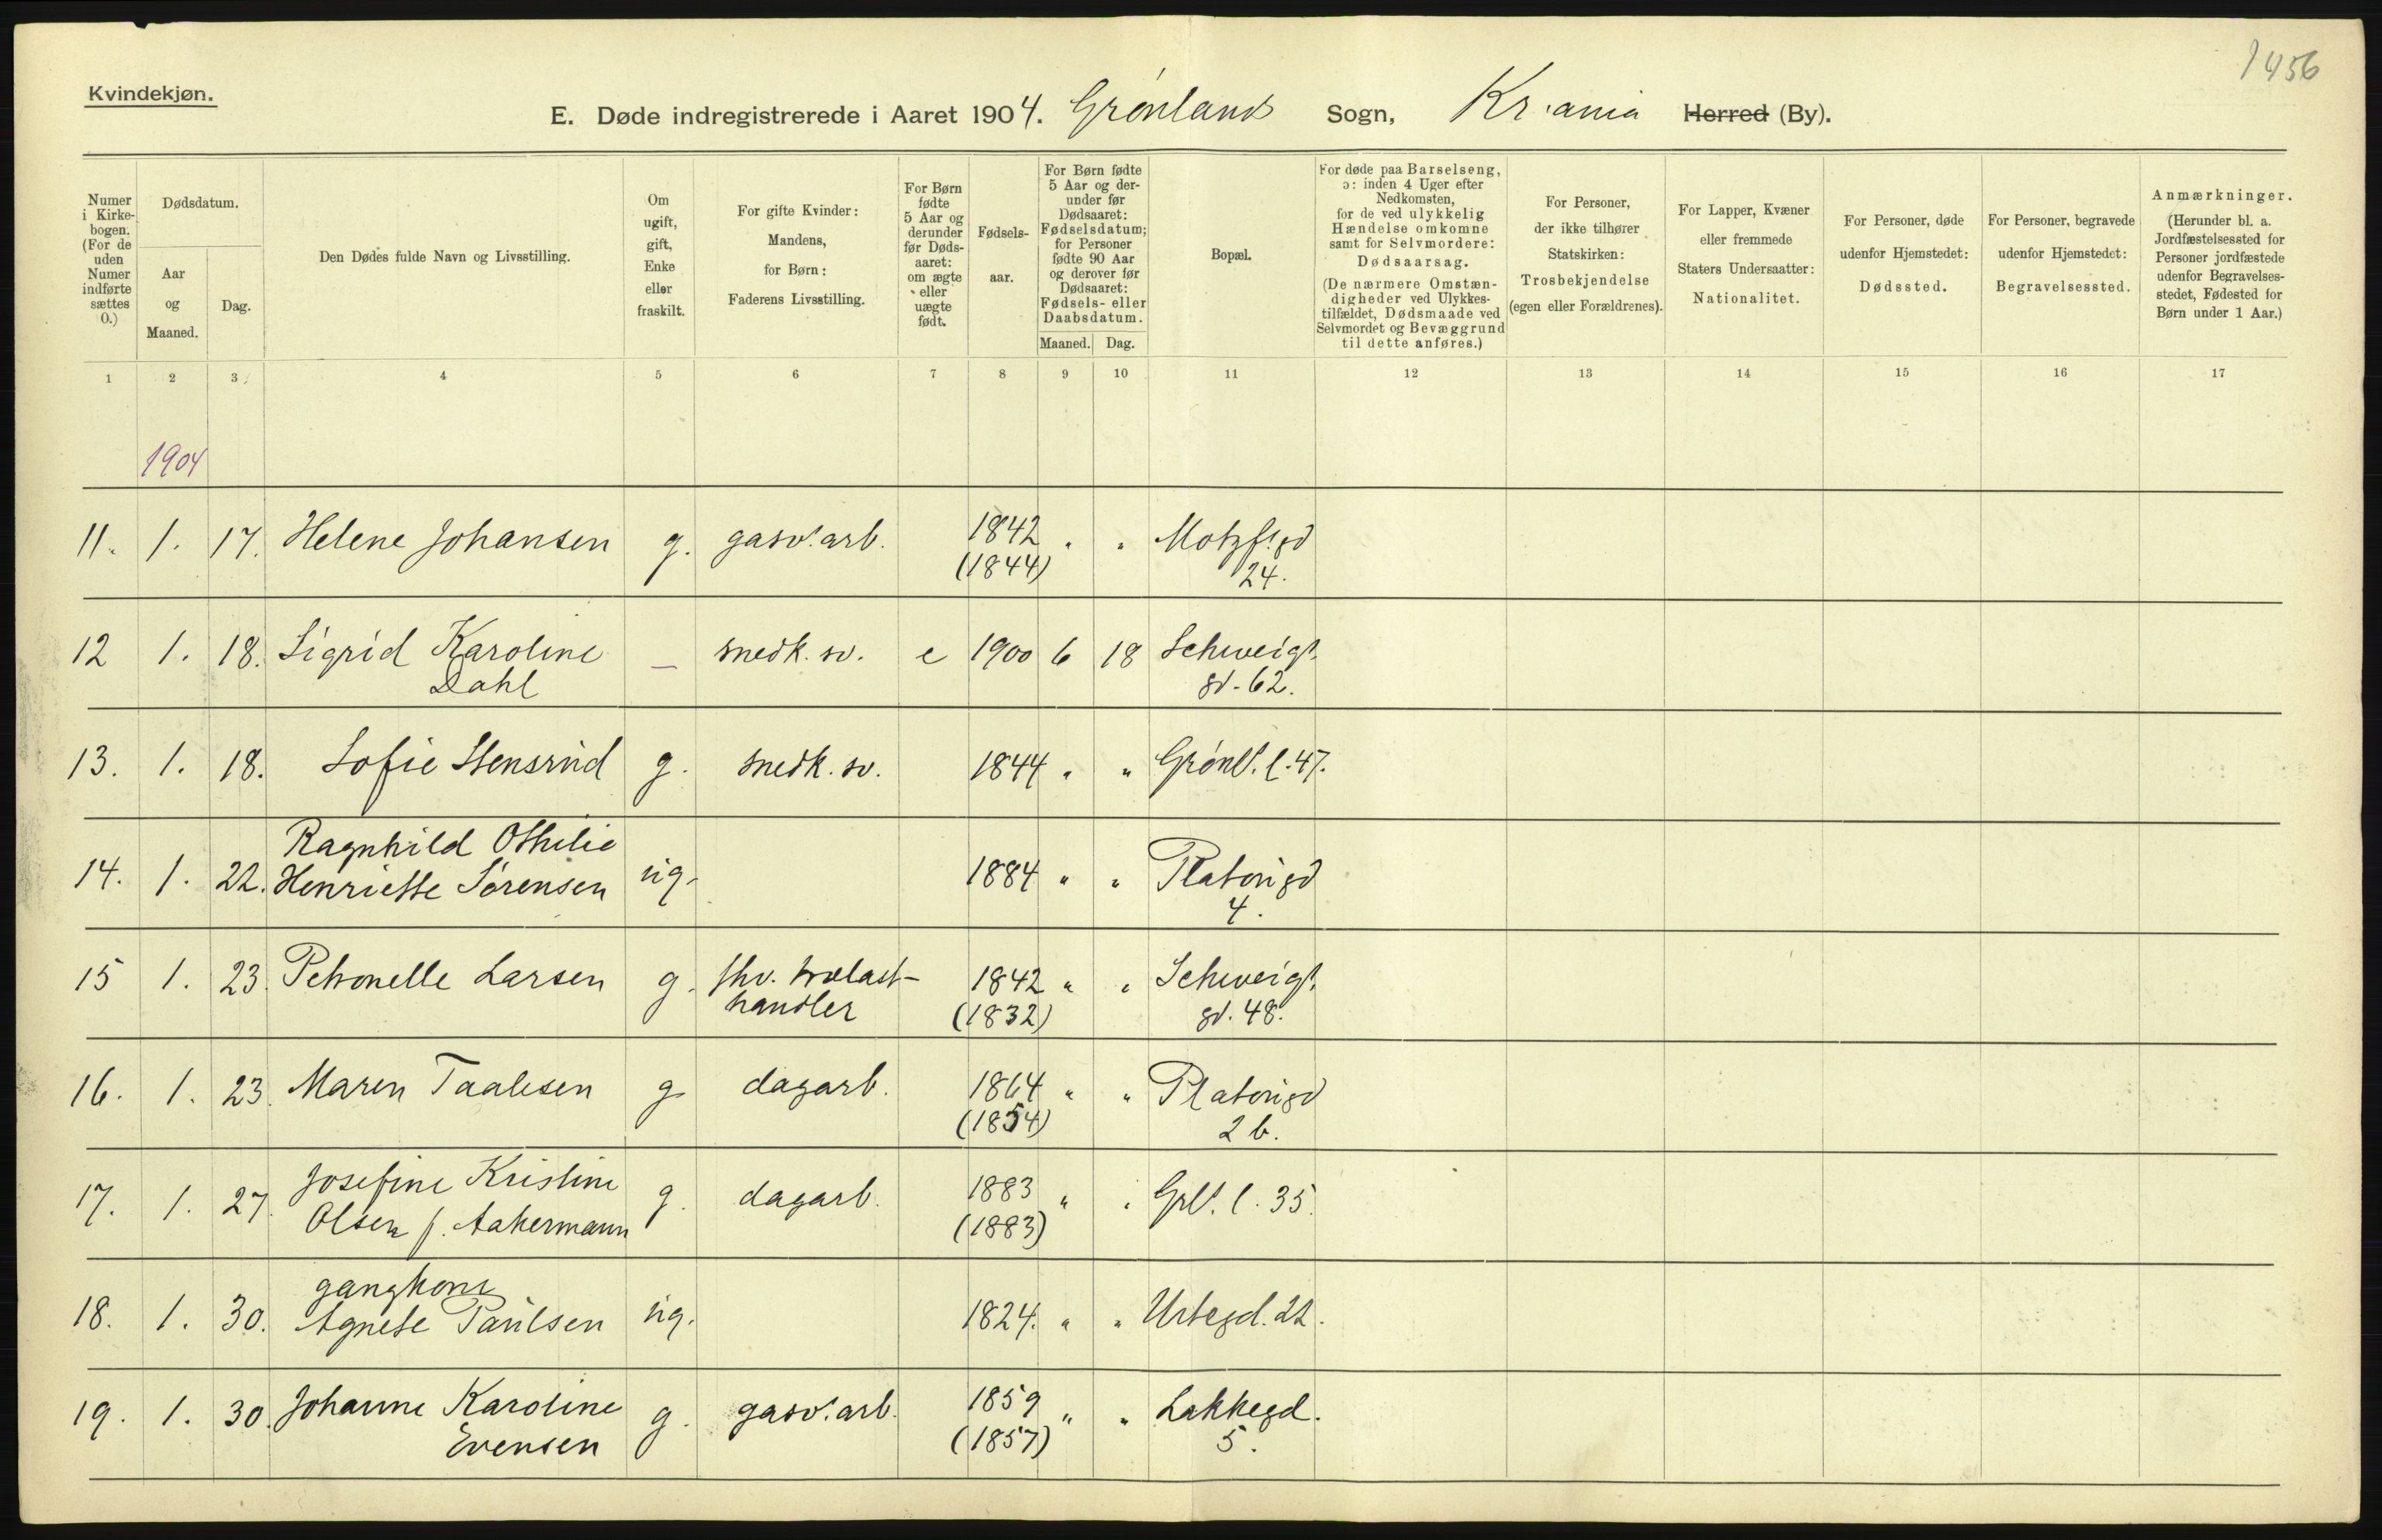 1456
Kvindekjøn.
E. Døde indregistrerede i Aaret 1904. Grønlands Sogn, Kr.ania Herred (By).
Numer i Kirkebogen. (For de uden Numer indførte sættes 0.)
Dødsdatum.
Aar og Maaned.
Dag.
Den Dødes fulde Navn og Livsstilling.
Om ugift, gift, Enke eller fraskilt.
For gifte Kvinder: Mandens, for Børn: Faderens Livsstilling.
For Børn fødte 5 Aar og derunder før Dødsaaret: om ægte eller uægte født.
Fødselsaar.
For Børn fødte 5 Aar og derunder før Dødsaaret: Fødselsdatum; for Personer fødte 90 Aar og derover før Dødsaaret: Fødsels- eller Daabsdatum.
Maaned. Dag.
Bopæl.
For døde paa Barselseng, ɔ: inden 4 Uger efter Nedkomsten, for de ved ulykkelig Hændelse omkomne samt for Selvmordere: Dødsaarsag. (De nærmere Omstændigheder ved Ulykkestilfældet, Dødsmaade ved Selvmordet og Bevæggrund til dette anføres.)
For Personer, der ikke tilhører Statskirken: Trosbekjendelse (egen eller Forældrenes).
For Lapper, Kvæner eller fremmede Staters Undersaatter: Nationalitet.
For Personer, døde udenfor Hjemstedet: Dødssted.
For Personer, begravede udenfor Hjemstedet: Begravelsessted.
Anmærkninger. (Herunder bl. a. Jordfæstelsessted for Personer jordfæstede udenfor Begravelsesstedet, Fødested for Børn under 1 Aar.)
1 2 3 4 5 6 7 8 9 10 11 12 13 14 15 16 17
1904
11. 1. 17. Helene Johansen g. gasv. arb. 1842 " " Motzf. gd
(1844) 24.
12 1. 18. Sigrid Karoline — snedk. sv. e 1900 6 18 Schweigs.
Dahl gd. 62.
13. 1. 18. Sofie Stensrud g. snedk. sv. 1844 " " Grønl. l. 47.
Ragnhild Othilie
14. 1. 22. Henriette Sørensen ug. 1884 " " Platousgd
4.
15 1. 23. Petronelle Larsen g. fhv. trælast- 1842 " " Schweigs.
handler (1832) gd. 48.
16. 1. 23. Maren Taalesen g. dagarb. 1864 " " Platousgd
(1854) 2 b.
Josefine Kristine 1883
17. 1. 27. Olsen f. Aakermann g. dagarb. (1883) " " Grl. l. 35.
gangkone
18. 1. 30. Agnete Paulsen ug. 1824. " " Urtegd. 22.
19. 1. 30. Johanne Karoline g. gasv. arb. 1859 " " Lakkegd.
Evensen (1857) 5.